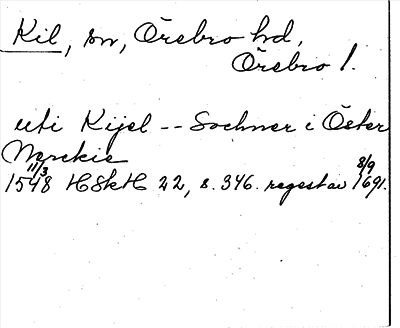 Kil, sn, Örebro hd,
Örebro l.
uti Kijel -- Sochner i Öster
Nerckie
11/3 1548 HSkH 22, s. 346. regest av 8/9 1691.